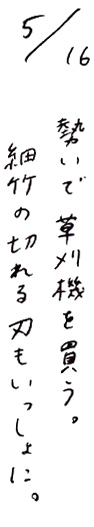 5/16
勢いで草刈機を買う。
細竹の切れる刃もいっしょに。